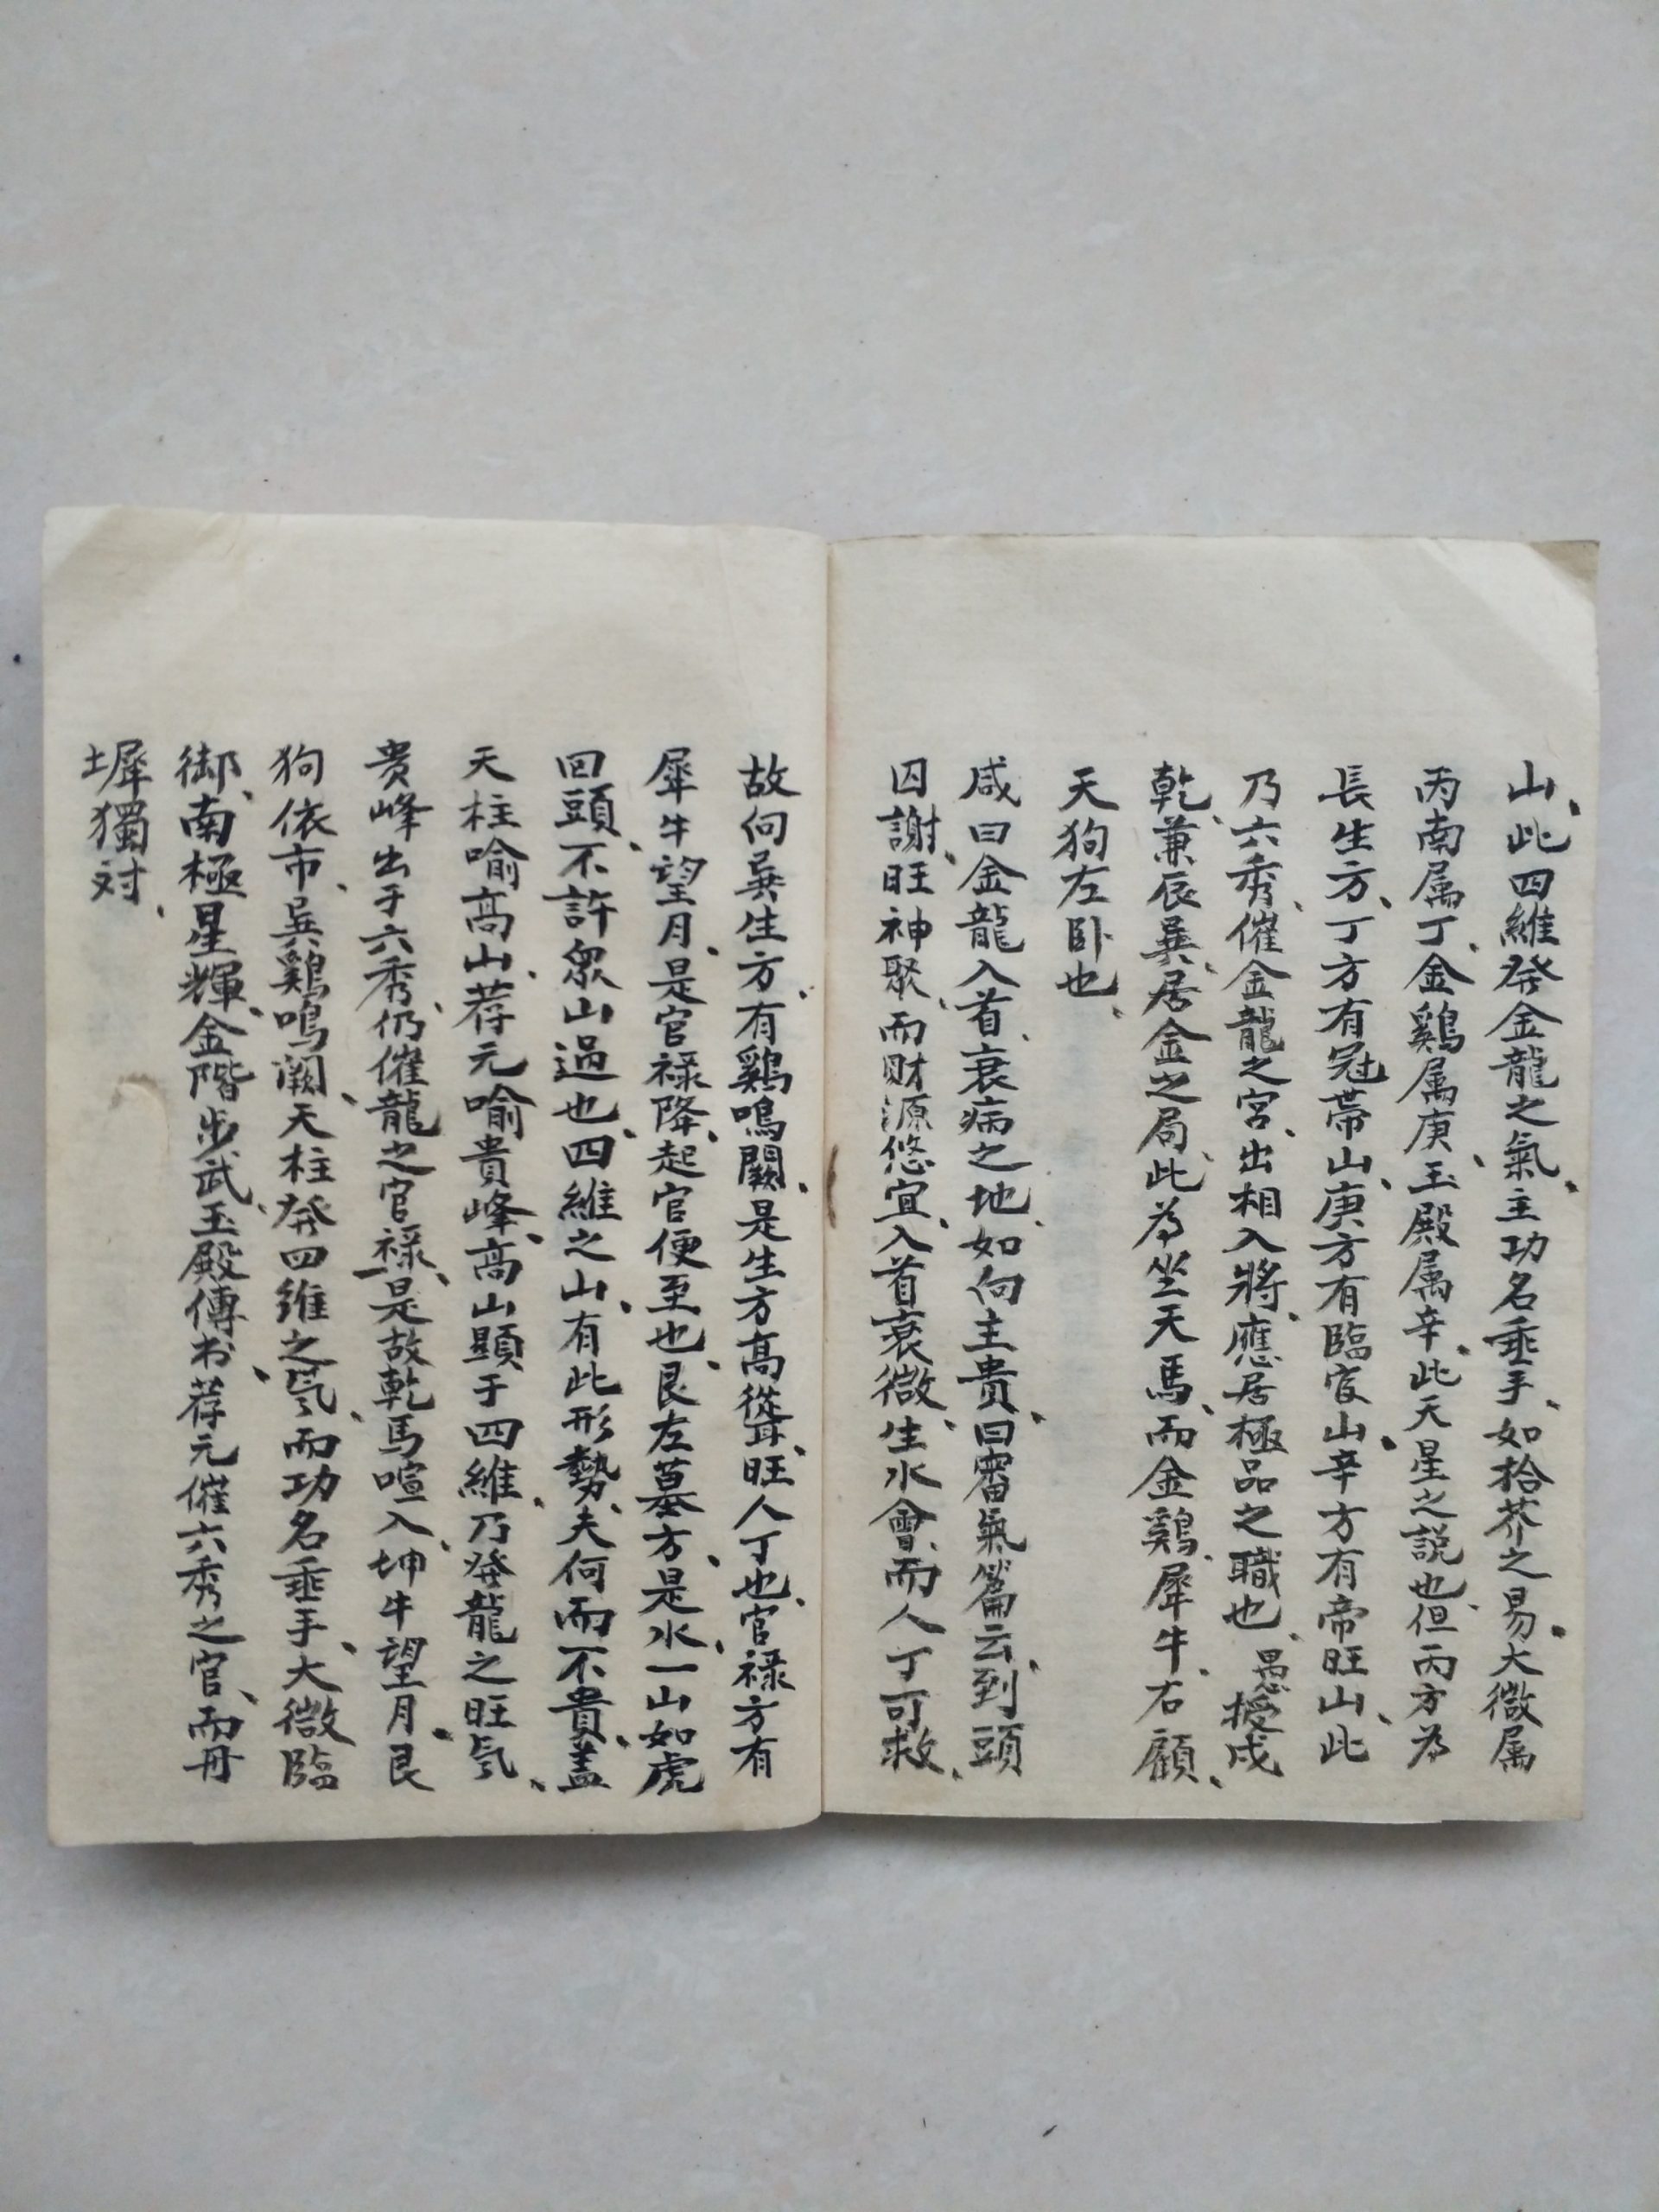 山、此四維発金龍之氣、主功名垂手、如拾芥之易、大微属
丙南属丁、金鷄属庚、玉殿属辛、此天星之説也、但丙方為
長生方、丁方有冠帶山、庚方有臨官山、辛方有帝旺山、此
乃六秀、催金龍之宮、出相入將、應居極品之職也、愚授戌
乾、兼辰巽、居金之局、此為坐天馬、而金鷄、犀牛、右顧、
天狗左卧也、
咸曰金龍入首、衰病之地、如向主貴、曰雷氣篇云、到頭
囚謝、旺神聚、而財源悠宜、入首衰微、生水會、而人丁可救、
故向巽生方、有鷄鳴闕、是生方高聳、旺人丁也、官禄方有
犀牛望月、是官禄降、起官便至也、艮左墓方、是水、一山如虎
回頭、不許衆山過也、四維之山、有此形勢、夫何而不貴、蓋
天柱喻高山、荐元喻貴峰、高山顯于四維、乃発龍之旺气、
贵峰出于六秀、仍催龍之官禄、是故乾馬喧入、坤牛望月、艮
狗依市、巽鷄鳴闕、天柱発四维之气、而功名垂手、大微臨
御、南極星輝、金階步武、玉殿傳书、荐元催六秀之官、而丹
墀獨对、